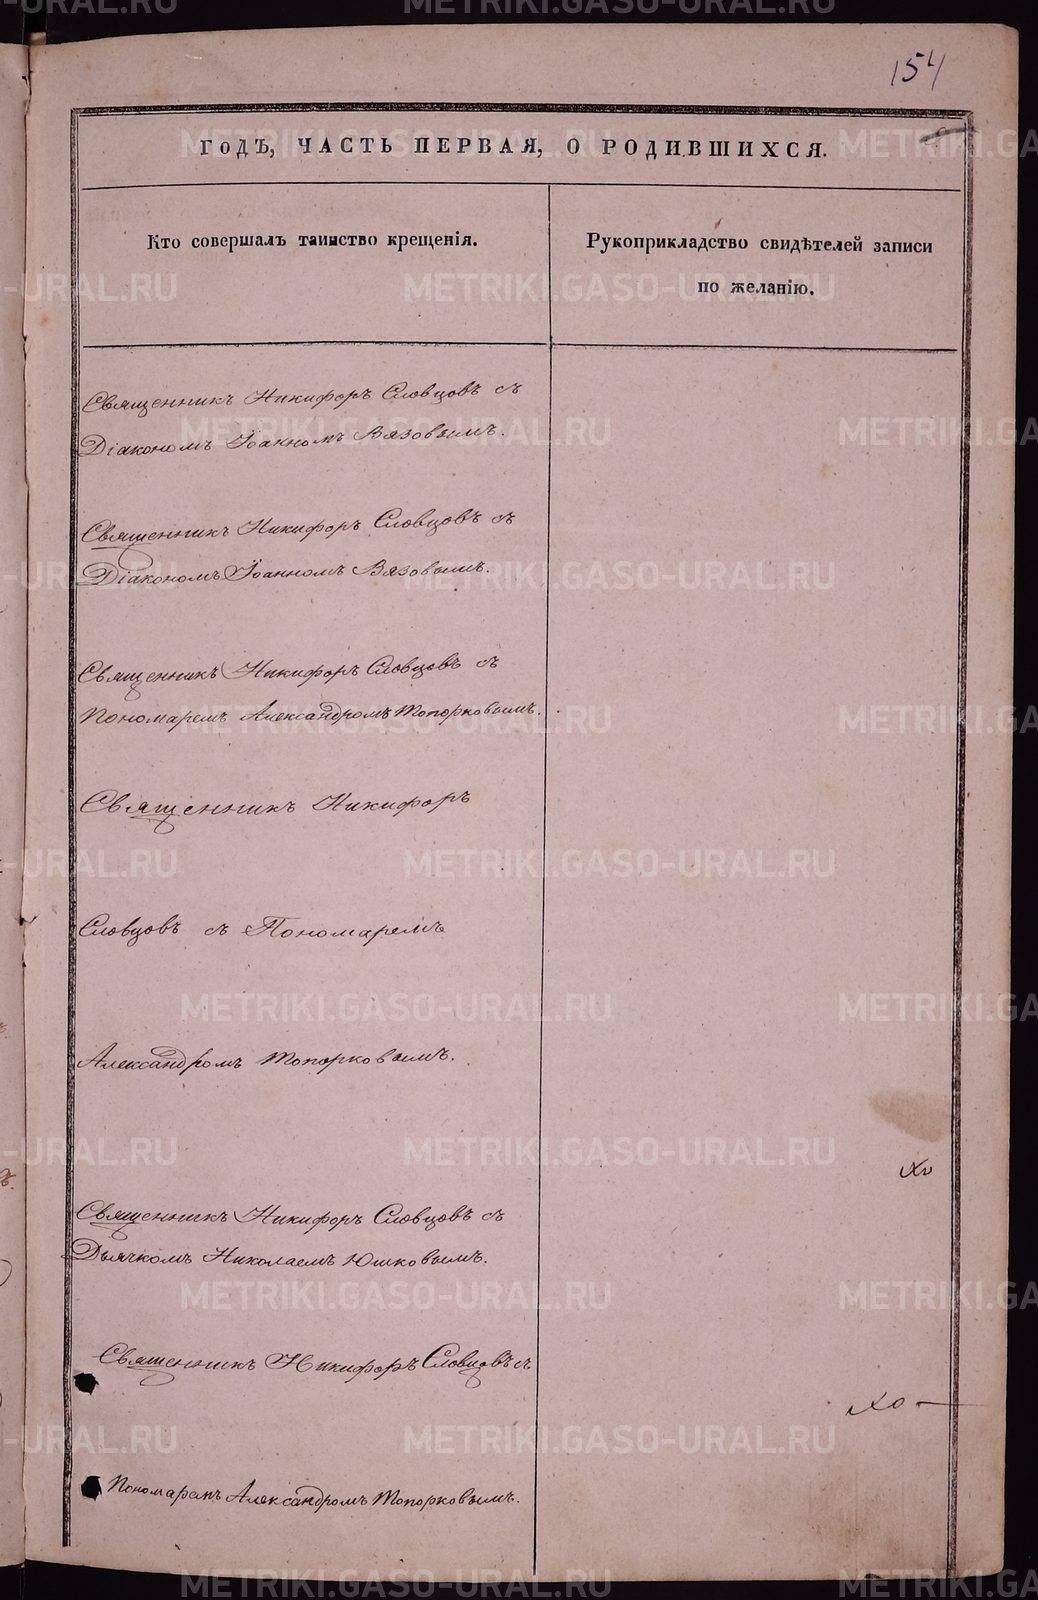 154
ГОДЪ, ЧАСТЬ ПЕРВАЯ, О РОДИВШИХСЯ.
Кто совершалъ таинство крещенія.
Рукоприкладство свидѣтелей записи
по желанію.
Священникъ Никифоръ Словцовъ съ
Діакономъ Іоанномъ Вязовымъ.
Священникъ Никифоръ Словцовъ съ
Діакономъ Іоанномъ Вязовымъ.
Священникъ Никифоръ Словцовъ съ
Пономаремъ Александромъ Топорковымъ.
Священникъ Никифоръ
Словцовъ съ Пономаремъ
Александромъ Топорковымъ.
Священникъ Никифоръ Словцовъ съ
Дьячкомъ Николаемъ Юшковымъ.
Священникъ Никифоръ Словцовъ съ
Пономаремъ Александромъ Топорковымъ.
METRIKI.GASO-URAL.RU